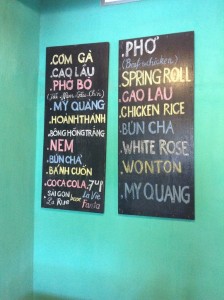 .CƠM GÀ
.CAO LẦU
.PHỞ BÒ
.MỲ QUẢNG
.HOÀNH THÁNH
.BÔNG HỒNG TRẮNG
.NEM
.BÚN CHẢ
.BÁNH CUỐN
.COCA COLA, 7up
.SAIGON, La Vie
La Rue beer Fanta
.PHỞ
(Beef-chicken)
.SPRING ROLL
.CAO LẦU
.CHICKEN RICE
.BÚN CHẢ
.WHITE ROSE
.WONTON
.MY QUANG